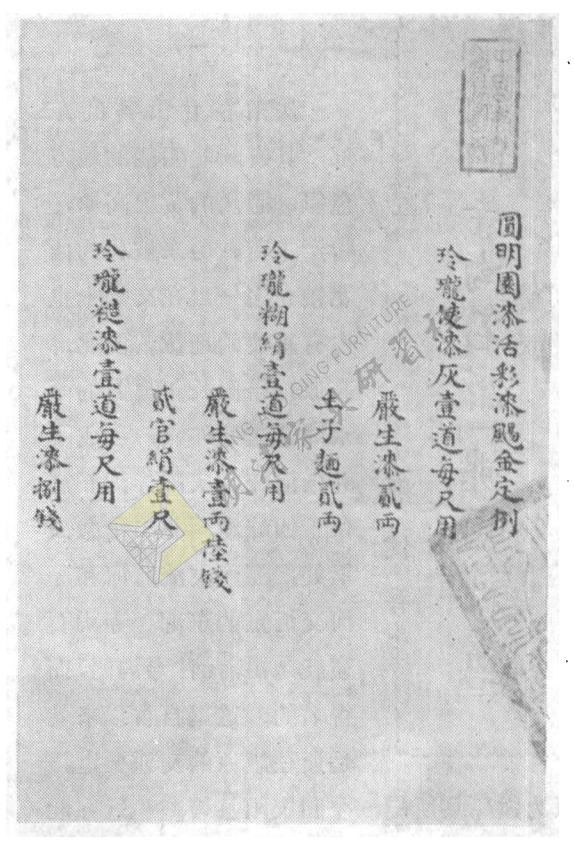 圓明園漆活彩漆颺金定例
玲瓏使漆灰壹道每尺用
嚴生漆貳兩
土子麵貳兩
玲瓏糊絹壹道每尺用
嚴生漆壹兩陸錢
貳官絹壹尺
玲瓏糙漆壹道每尺用
嚴生漆捌錢
MING AND QING FURNITURE